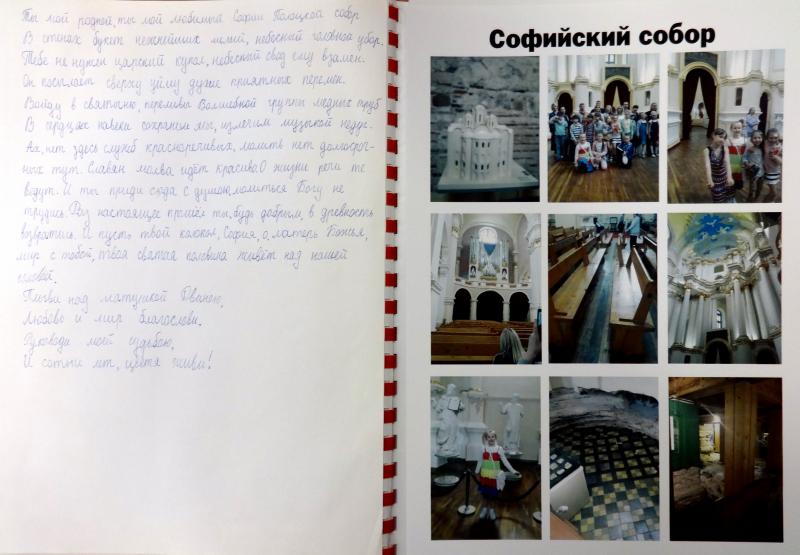 Ты мой родной, ты мой любимый Софии Полоцкой собор
В стенах букет нежнейших линий, небосный головной убор.
Тебе не нужен царский купол, небесный свод ему взамен.
Он посылает сверху уйму других приятных перемен.
Войду в святыню, переливы Волшебной группы медных труб
В сердцах навеки сохраним мы, излечим музыкой недуг.
Ах, нет здесь служб красноречивых, молить нет долгосроч-
ных тут. Славян молва идёт красива. О жизни речи те
ведут. И ты приди сюда с душою, молиться Богу не
трудись. Из настоящего пришёл ты, будь добрым, в древность
возвратись. И пусть твой колокол, София, о, матерь Божья,
мир с тобой, твоя святая половина живёт над нашей
головой.
Плыви над матушкой Двиною,
Любовь и мир благослови.
Руководи моей судьбою,
И сотни лет, цветя живи!
Софийский собор